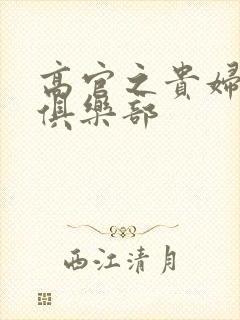 高官之貴婦
俱樂部
西江清月